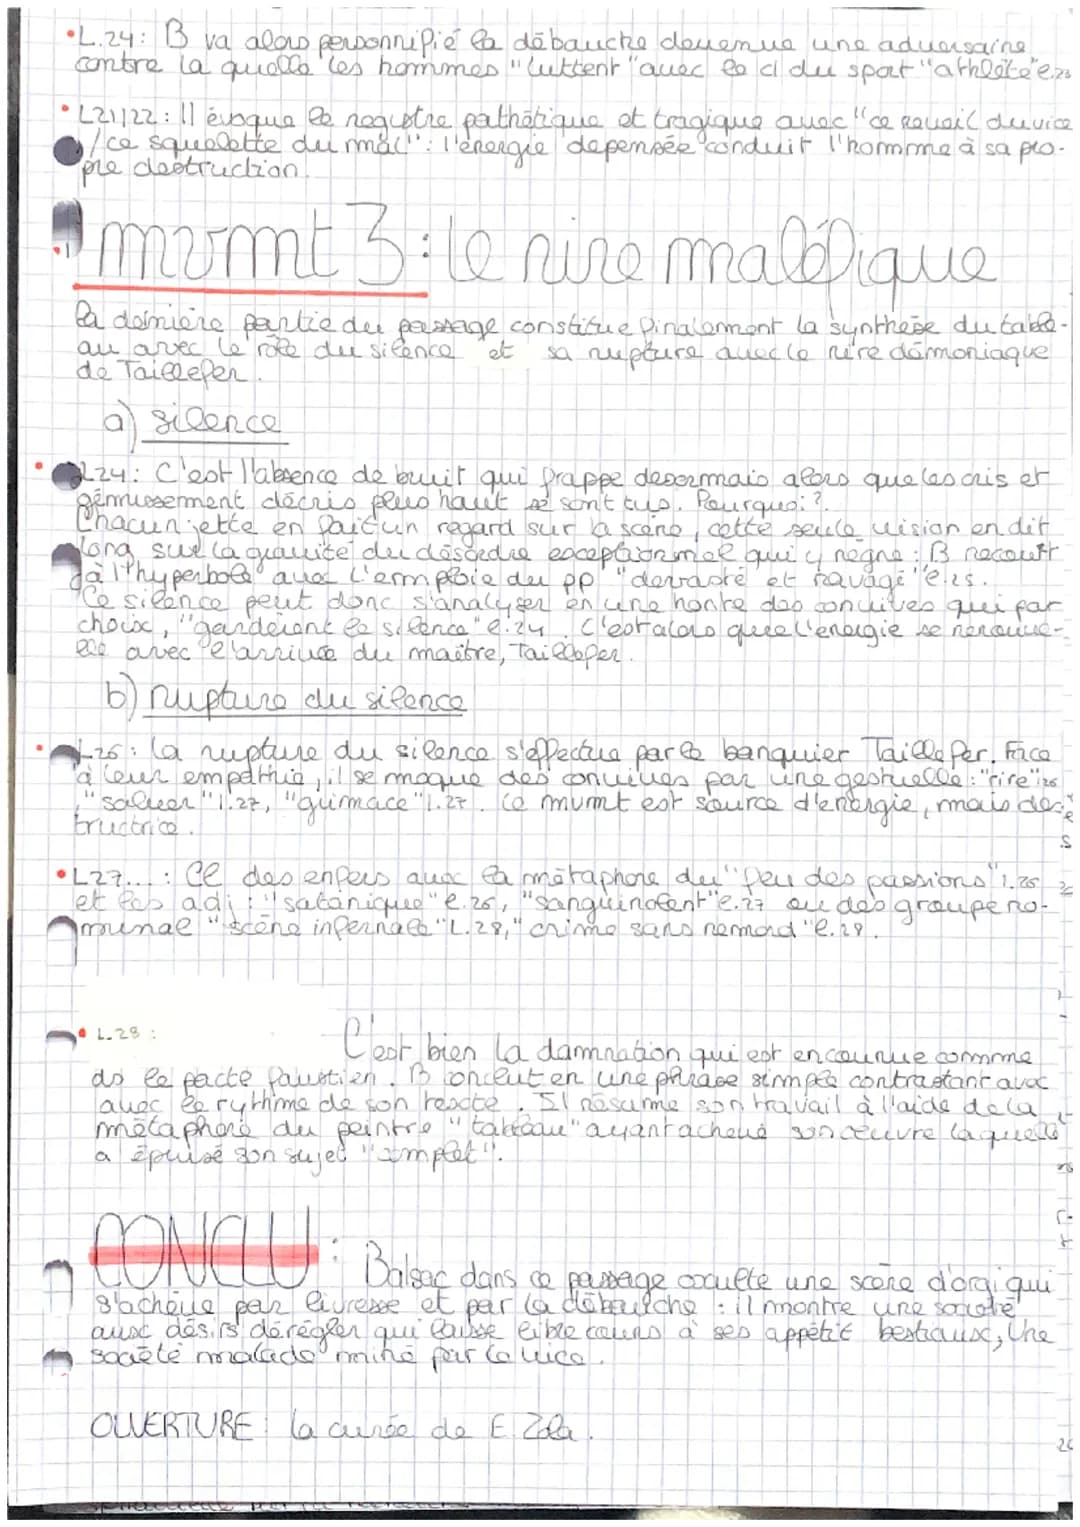 • L.24: B va alors personnifié la débauche devenue une adversaire
contre la quelle les hommes "luttent" avec le cl du sport "athlète" l.23
• L21/22: Il évoque le registre pathétique et tragique avec "ce réveil du vice
/ce squelette du mal": l'énergie dépensée conduit l'homme à sa pro-
pre destruction.
mvmt 3: le rire maléfique
la dernière partie du passage constitue finalement la synthèse du table-
au avec le rôle du silence et sa rupture avec le rire démoniaque
de Taillefer.
a) silence
• L24: C'est l'absence de bruit qui frappe desormais alors que les cris et
gémissement décris plus haut se sont tus. Pourquoi?
Chacun jette en fait un regard sur la scène, cette seule vision en dit
long sur la gravité du désordre exceptionnel qui y règne: B recourt
à l'hyperbole avec l'emploie du pp "devasté et ravagé" l.25.
Ce silence peut donc s'analyser en une honte des convives qui par
choix, "gardèrent le silence" l.24. C'est alors que l'énergie se renouve-
lle avec l'arrivée du maître, Taillefer.
b) rupture du silence
• L26: la rupture du silence s'effectue par le banquier Taillefer. Face
à leur empathie, il se moque des convives par une gestuelle: "rire" l26
, "saluer" l.27, "grimace" l.27. Ce mvmt est source d'énergie, mais des
tructrice.
• L27...: Cl des enfers avec la métaphore du "feu des passions" l.26
et les adj: "satanique" l.26, "sanguinolent" l.27 ou des groupe no-
minal "scène infernale" L.28, "crime sans remord" l.28.
• L.28:
C'est bien la damnation qui est encourue comme
ds le pacte faustien. B conclut en une phrase simple contrastant avec
avec le rythme de son texte. Il résume son travail à l'aide de la
métaphore du peintre "tableau" ayant achevé son oeuvre laquelle
a épuisé son sujet "complet".
CONCLU: Balsac dans ce passage occulte une scène d'orgi qui
s'achève par livresse et par la débauche: il montre une société
aux désirs dérégler qui laisse libre cours à ses appétit bestiaux, Une
société malade miné par le vice.
OUVERTURE: la curée de E. Zola.